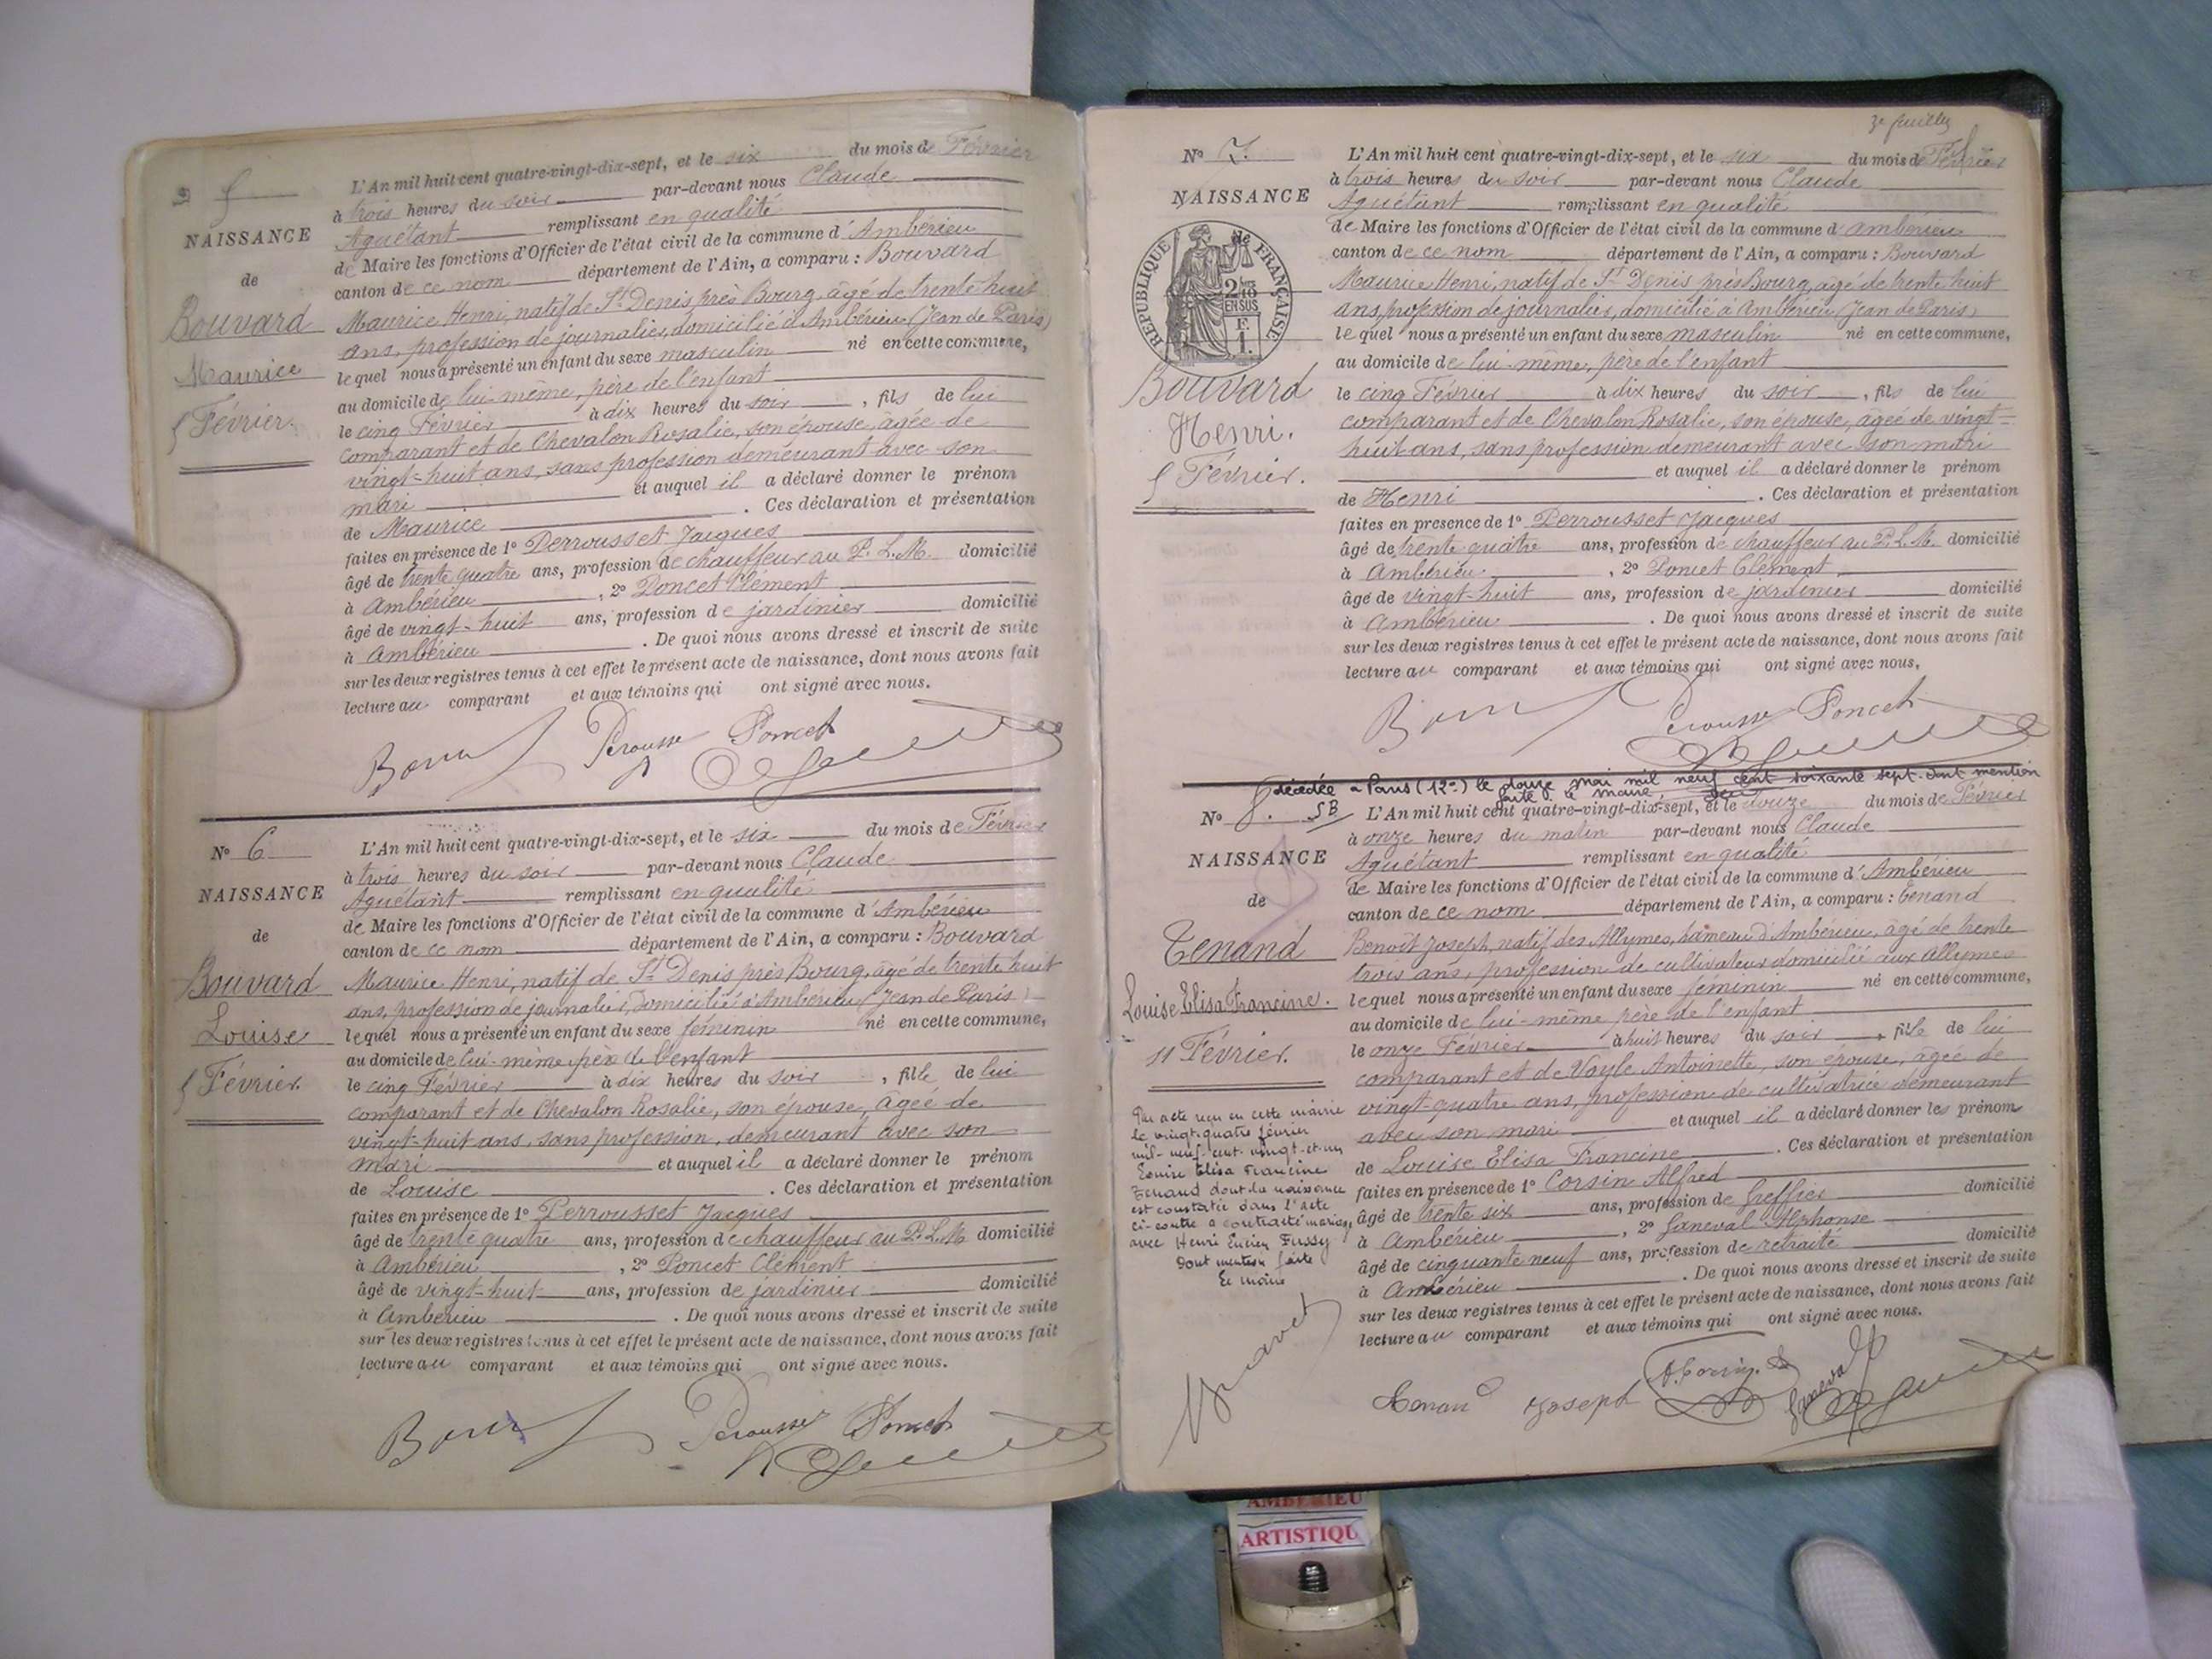 5
NAISSANCE
de
Bouvard
Maurice
5 Février.
L'An mil huit cent quatre-vingt-dix-sept, et le six du mois de Février
à trois heures du soir par-devant nous Claude
Aguétant remplissant en qualité
de Maire les fonctions d'Officier de l'état civil de la commune d'Ambérieu
canton de ce nom département de l'Ain, a comparu : Bouvard
Maurice Henri, natif de St Denis près Bourg, âgé de trente huit
ans, profession de journalier, domicilié à Ambérieu (Jean de Paris)
lequel nous a présenté un enfant du sexe masculin né en cette commune,
au domicile de lui-même, père de l'enfant
le cinq Février à dix heures du soir, fils de lui
comparant et de Chevalon Rosalie, son épouse, âgée de
vingt-huit ans, sans profession demeurant avec son
mari et auquel il a déclaré donner le prénom
de Maurice. Ces déclaration et présentation
faites en présence de 1º Perrousset Jacques
âgé de trente quatre ans, profession de chauffeur au P.L.M. domicilié
à Ambérieu, 2º Poncet Clément
âgé de vingt-huit ans, profession de jardinier domicilié
à Ambérieu. De quoi nous avons dressé et inscrit de suite
sur les deux registres tenus à cet effet le présent acte de naissance, dont nous avons fait
lecture au comparant et aux témoins qui ont signé avec nous.
Perousse Poncet
Nº 6
NAISSANCE
de
Bouvard
Louise
5 Février.
L'An mil huit cent quatre-vingt-dix-sept, et le six du mois de Février
à trois heures du soir par-devant nous Claude
Aguétant remplissant en qualité
de Maire les fonctions d'Officier de l'état civil de la commune d'Ambérieu
canton de ce nom département de l'Ain, a comparu : Bouvard
Maurice Henri, natif de St Denis près Bourg, âgé de trente huit
ans, profession de journalier, domicilié à Ambérieu (Jean de Paris)
lequel nous a présenté un enfant du sexe féminin né en cette commune,
au domicile de lui-même père de l'enfant
le cinq Février à dix heures du soir, fille de lui
comparant et de Chevalon Rosalie, son épouse, âgée de
vingt-huit ans, sans profession, demeurant avec son
mari et auquel il a déclaré donner le prénom
de Louise. Ces déclaration et présentation
faites en présence de 1º Perrousset Jacques
âgé de trente quatre ans, profession de chauffeur au P.L.M domicilié
à Ambérieu, 2º Poncet Clément
âgé de vingt-huit ans, profession de jardinier domicilié
à Ambérieu. De quoi nous avons dressé et inscrit de suite
sur les deux registres tenus à cet effet le présent acte de naissance, dont nous avons fait
lecture au comparant et aux témoins qui ont signé avec nous.
Perousse Poncet
3e feuillet
Nº 7.
NAISSANCE
RÉPUBLIQUE FRANÇAISE
2/10 EN SUS
Bouvard
Henri.
5 Février.
L'An mil huit cent quatre-vingt-dix-sept, et le six du mois de Février
à trois heures du soir par-devant nous Claude
Aguétant remplissant en qualité
de Maire les fonctions d'Officier de l'état civil de la commune d'ambérieu
canton de ce nom département de l'Ain, a comparu : Bouvard
Maurice Henri, natif de St Denis près Bourg, âgé de trente huit
ans, profession de journalier, domicilié à Ambérieu (Jean de Paris)
lequel nous a présenté un enfant du sexe masculin né en cette commune,
au domicile de lui-même, père de l'enfant
le cinq Février à dix heures du soir, fils de lui
comparant et de Chevalon Rosalie, son épouse, âgée de vingt-
huit ans, sans profession demeurant avec son mari
et auquel il a déclaré donner le prénom
de Henri. Ces déclaration et présentation
faites en présence de 1º Perrousset Jacques
âgé de trente quatre ans, profession de chauffeur au P.L.M. domicilié
à Ambérieu, 2º Poncet Clément
âgé de vingt-huit ans, profession de jardinier domicilié
à Ambérieu. De quoi nous avons dressé et inscrit de suite
sur les deux registres tenus à cet effet le présent acte de naissance, dont nous avons fait
lecture au comparant et aux témoins qui ont signé avec nous.
Perousse Poncet
décédée a Paris (12e) le douze mai mil neuf cent soixante sept. dont mention
faite. le maire,
Nº 8. SB
NAISSANCE
de
Tenand
Louise Elisa Francine.
11 Février.
L'An mil huit cent quatre-vingt-dix-sept, et le douze du mois de Février
à onze heures du matin par-devant nous Claude
Aguétant remplissant en qualité
de Maire les fonctions d'Officier de l'état civil de la commune d'Ambérieu
canton de ce nom département de l'Ain, a comparu : Tenand
Benoît Joseph, natif des Allymes, hameau d'Ambérieu, âgé de trente
trois ans, profession de cultivateur domicilié aux Allymes
lequel nous a présenté un enfant du sexe féminin né en cette commune,
au domicile de lui-même père de l'enfant
le onze Février à huit heures du soir, fille de lui
comparant et de Vayle Antoinette, son épouse, âgée de
vingt-quatre ans, profession de cultivatrice demeurant
avec son mari et auquel il a déclaré donner les prénom
de Louise Elisa Francine. Ces déclaration et présentation
faites en présence de 1º Corsin Alfred
âgé de trente six ans, profession de Greffier domicilié
à Ambérieu, 2º Ganeval Alphonse
âgé de cinquante neuf ans, profession de retraité domicilié
à Ambérieu. De quoi nous avons dressé et inscrit de suite
sur les deux registres tenus à cet effet le présent acte de naissance, dont nous avons fait
lecture au comparant et aux témoins qui ont signé avec nous.
Par acte reçu en cette mairie
le vingt-quatre février
mil-neuf-cent-vingt-et-un
Louise Elisa Francine
Tenand dont la naissance
est constatée dans l'acte
ci-contre a contracté mariage
avec Henri Lucien Fussy
Dont mention faite
Le maire
Tenand Joseph A. Corsin Ganeval
AMBERIEU
ARTISTIQU